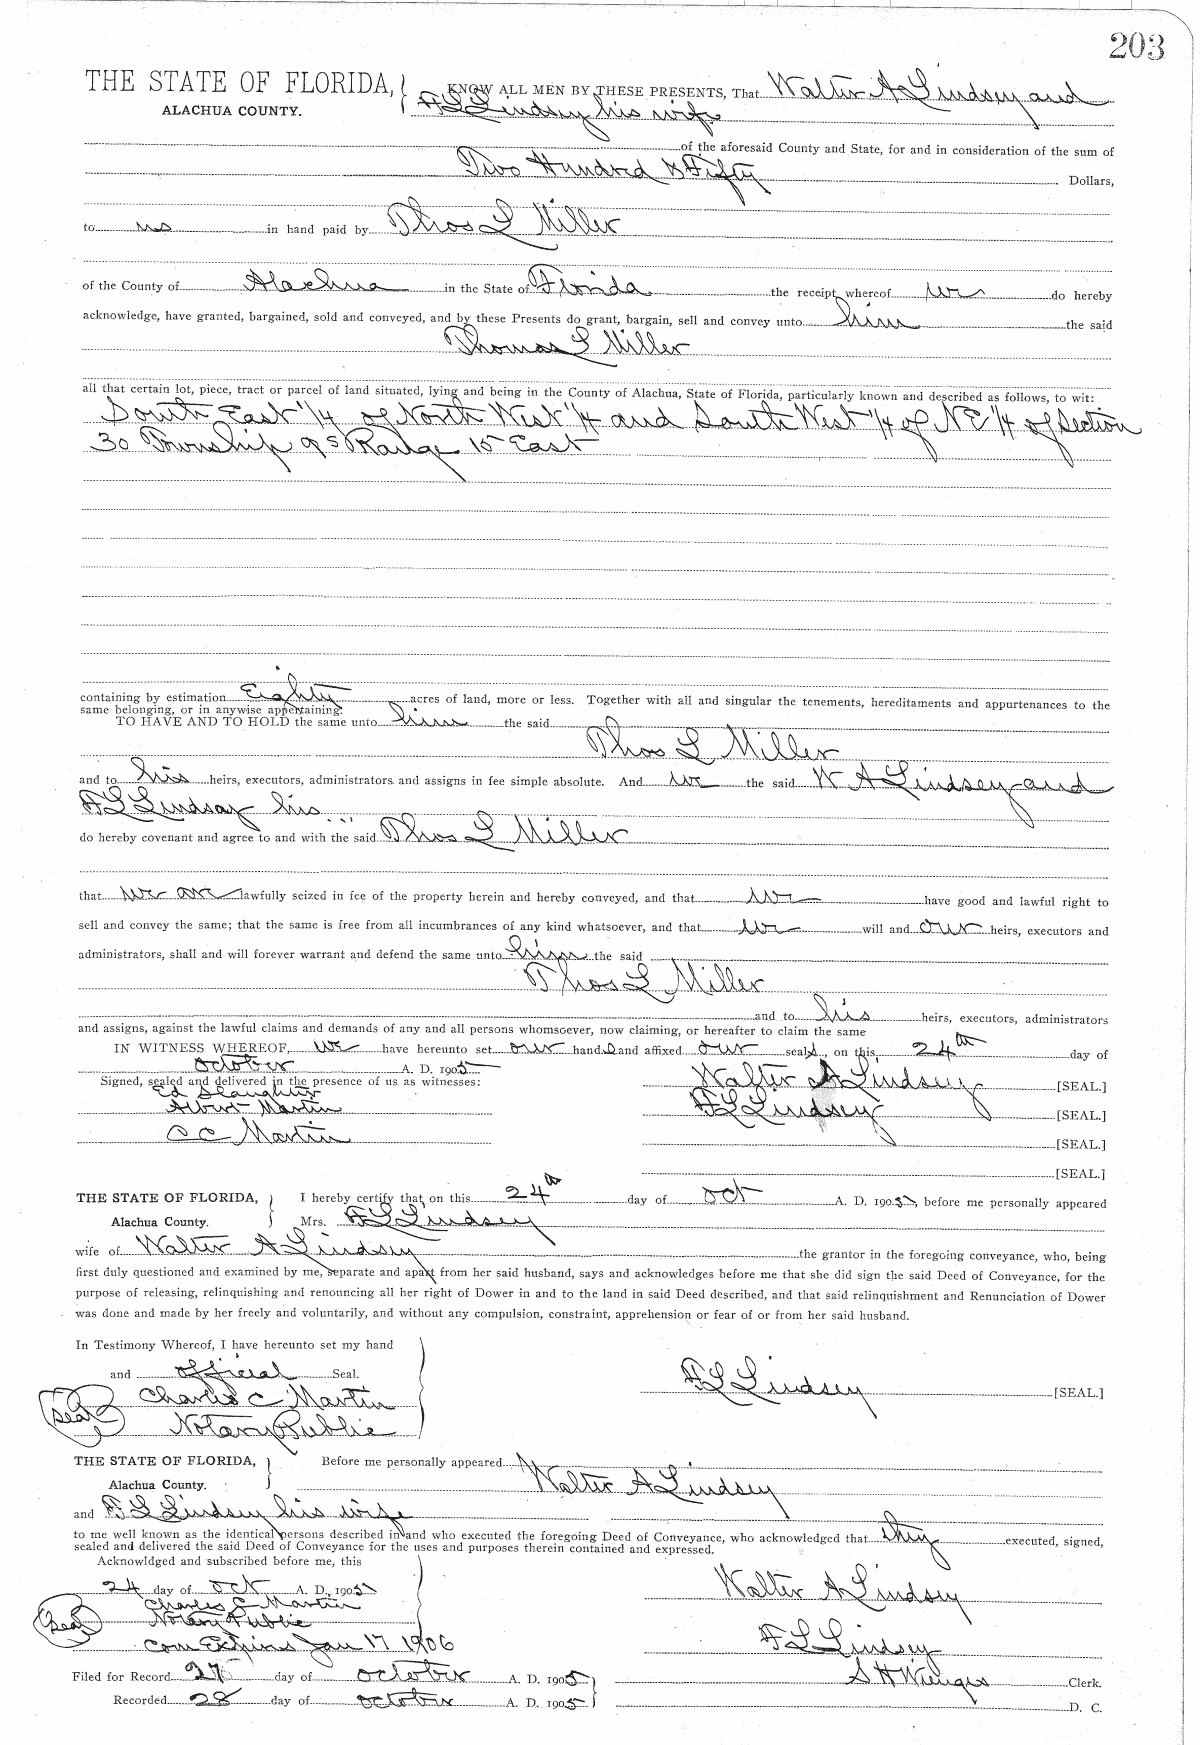 203
THE STATE OF FLORIDA, KNOW ALL MEN BY THESE PRESENTS, That Walter A Lindsey and
ALACHUA COUNTY. F L Lindsey his wife
of the aforesaid County and State, for and in consideration of the sum of
Two Hundred & Fifty Dollars,
to us in hand paid by Thos L Miller
of the County of Alachua in the State of Florida the receipt whereof we do hereby
acknowledge, have granted, bargained, sold and conveyed, and by these Presents do grant, bargain, sell and convey unto him the said
Thomas L Miller
all that certain lot, piece, tract or parcel of land situated, lying and being in the County of Alachua, State of Florida, particularly known and described as follows, to wit:
South East 1/4 of North West 1/4 and South West 1/4 of NE 1/4 of Section
30 Township 9 S Range 15 East
containing by estimation Eighty acres of land, more or less. Together with all and singular the tenements, hereditaments and appurtenances to the
same belonging, or in anywise appertaining.
TO HAVE AND TO HOLD the same unto him the said
Thos L Miller
and to his heirs, executors, administrators and assigns in fee simple absolute. And we the said W A Lindsey and
F L Lindsay his ...
do hereby covenant and agree to and with the said Thos L Miller
that we are lawfully seized in fee of the property herein and hereby conveyed, and that we have good and lawful right to
sell and convey the same; that the same is free from all incumbrances of any kind whatsoever, and that we will and our heirs, executors and
administrators, shall and will forever warrant and defend the same unto him the said
Thos L Miller
and to his heirs, executors, administrators
and assigns, against the lawful claims and demands of any and all persons whomsoever, now claiming, or hereafter to claim the same
IN WITNESS WHEREOF, we have hereunto set our hands and affixed our seals, on this, 24th day of
October A. D. 1905
Signed, sealed and delivered in the presence of us as witnesses: Walter A Lindsey [SEAL.]
Ed Slaughter
Albert Martin F L Lindsey [SEAL.]
C C Martin [SEAL.]
[SEAL.]
THE STATE OF FLORIDA, I hereby certify that on this 24th day of Oct A. D. 1905, before me personally appeared
Alachua County. Mrs. F L Lindsey
wife of Walter A Lindsey the grantor in the foregoing conveyance, who, being
first duly questioned and examined by me, separate and apart from her said husband, says and acknowledges before me that she did sign the said Deed of Conveyance, for the
purpose of releasing, relinquishing and renouncing all her right of Dower in and to the land in said Deed described, and that said relinquishment and Renunciation of Dower
was done and made by her freely and voluntarily, and without any compulsion, constraint, apprehension or fear of or from her said husband.
In Testimony Whereof, I have hereunto set my hand
and official Seal.
Charles C Martin F L Lindsey [SEAL.]
Seal Notary Public
THE STATE OF FLORIDA, Before me personally appeared
Alachua County. Walter A Lindsey
and F L Lindsey his wife
to me well known as the identical persons described in and who executed the foregoing Deed of Conveyance, who acknowledged that they executed, signed,
sealed and delivered the said Deed of Conveyance for the uses and purposes therein contained and expressed.
Acknowldged and subscribed before me, this
24 day of Oct A. D., 1905 Walter A Lindsey
Charles C Martin
Seal Notary Public
Com Expires Jan 17 1906 F L Lindsey
Filed for Record 27 day of October A. D. 1905 S H Wienges Clerk.
Recorded 28 day of October A. D. 1905 D. C.